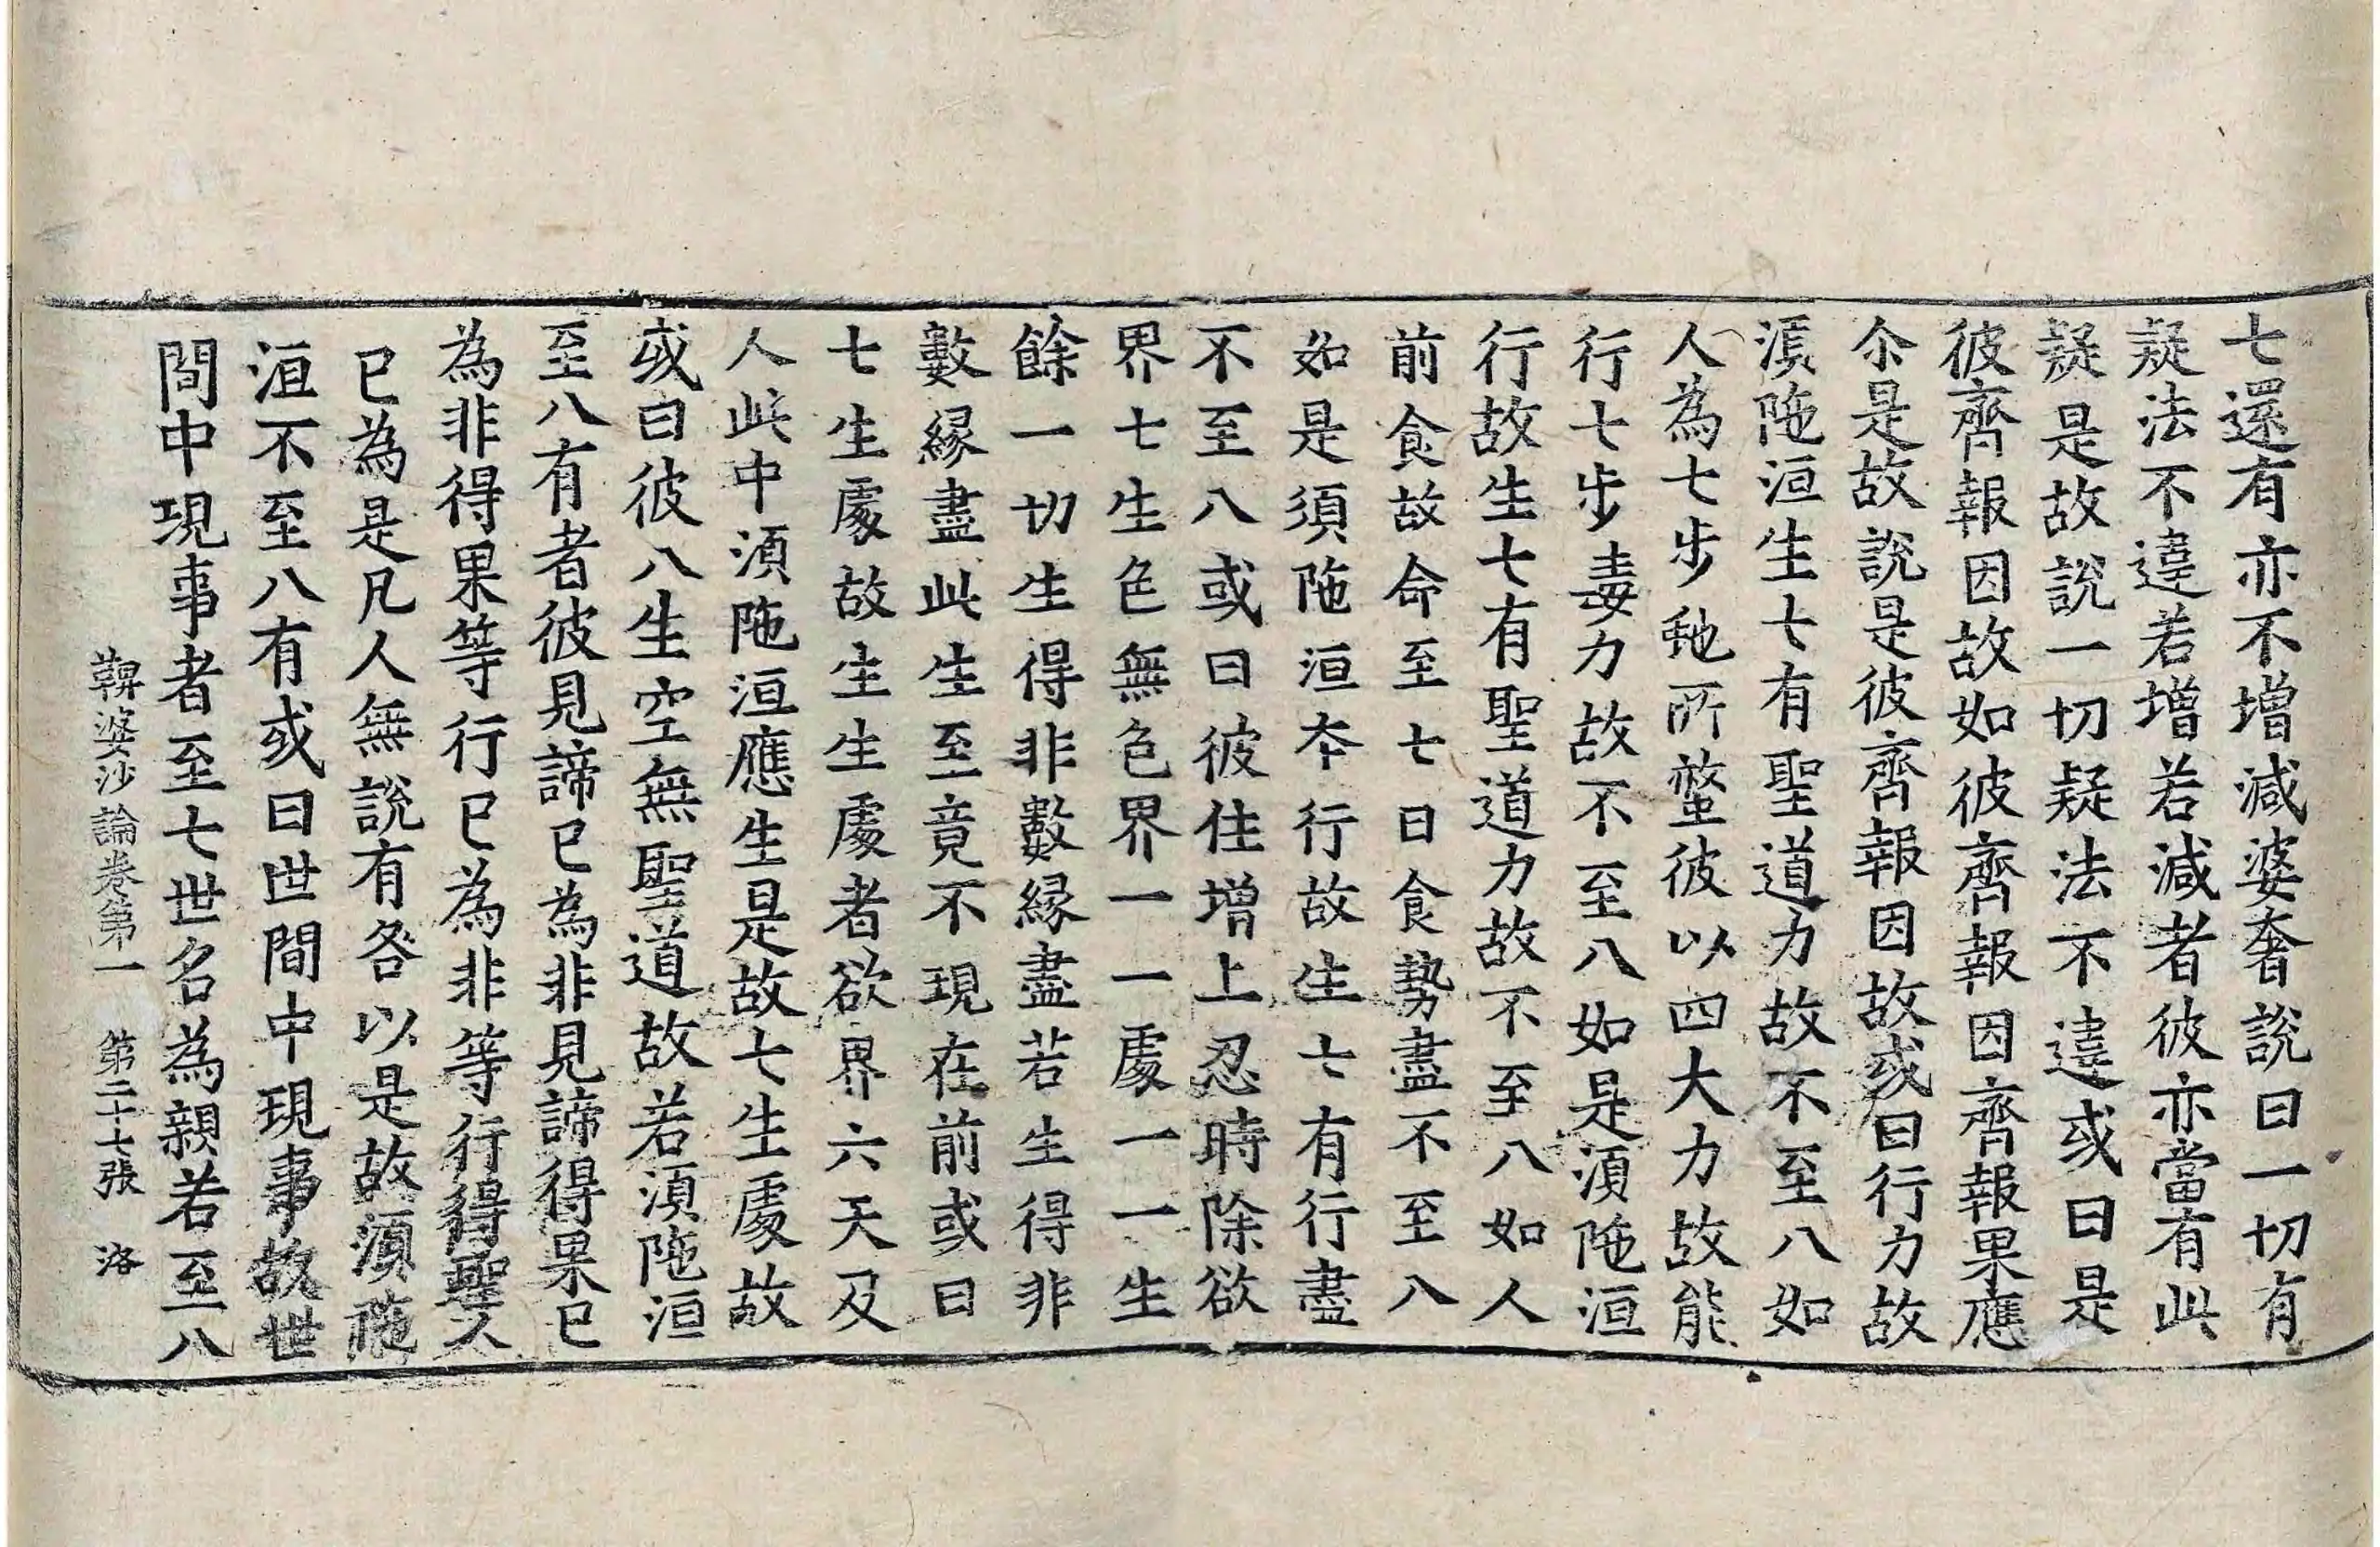 七還有亦不增減婆奢說曰一切有
疑法不違若增若減者彼亦當有此
疑是故說一切疑法不違或曰是
彼齊報因故如彼齊報因齊報果應
尒是故說是彼齊報因故或曰行力故
湏陁洹生七有聖道力故不至八如
人為七步虵所螫彼以四大力故能
行七步毒力故不至八如是湏陁洹
行故生七有聖道力故不至八如人
前食故命至七日食勢盡不至八
如是須陁洹本行故生七有行盡
不至八或曰彼住增上忍時除欲
界七生色無色界一一處一一生
餘一切生得非數緣盡若生得非
數緣盡此生至竟不現在前或曰
七生處故生生處者欲界六天及
人此中湏陁洹應生是故七生處故
或曰彼八生空無聖道故若湏陁洹
至八有者彼見諦已為非見諦得果已
為非得果等行已為非等行得聖人
已為是凡人無說有咎以是故湏陁
洹不至八有或曰世間中現事故世
間中現事者至七世名為親若至八
鞞婆沙論卷第一 第二十七張 洛